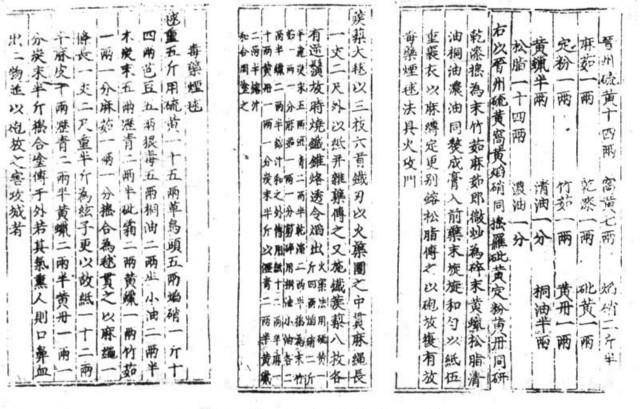 晉州硫黃十四兩 窩黃七兩 焰硝二斤半
麻茹一兩 乾漆一兩 砒黃一兩
定粉一兩 竹茹一兩 黃丹一兩
黃蠟半兩 清油一分 桐油半兩
松脂一十四兩 濃油一分
右以晉州硫黃窩黃焰硝同搗羅砒黃定粉黃丹同研
乾漆搗為末竹茹麻茹即微炒為碎末黃蠟松脂清
油桐油濃油同熬成膏入前藥末旋旋和勻以紙伍
重裹衣以麻縛定更別鎔松脂傅之以砲放復有放
毒藥煙毬法具火攻門
蒺藜火毬以三枝六首鐵刃以火藥團之中貫麻繩長
一丈二尺外以紙并雜藥傅之又施鐵蒺藜八枚各
有逆鬚放時燒鐵錐烙透令焰出
火藥法用硫黃一
斤四兩焰硝二斤
半麄炭末五兩瀝青二兩半乾漆二兩半搗為末竹
茹一兩一分麻茹一兩一分剪碎用桐油小油各二
兩半蠟二兩半鎔汁和之外傅用紙十二兩半麻一
十兩黃丹一兩一分炭末半斤以瀝青二兩半黃蠟
二兩半鎔汁
和合周塗之
毒藥煙毬
毬重五斤用硫黃一十五兩草烏頭五兩焰硝一斤十
四兩芭豆五兩狼毒五兩桐油二兩半小油二兩半
木炭末五兩瀝青二兩半砒霜二兩黃蠟一兩竹茹
一兩一分麻茹一兩一分搗合為毬貫之以麻繩一
條長一丈二尺重半斤為絃子更以故紙一十二兩
半麻皮十兩瀝青二兩半黃蠟二兩半黃丹一兩一
分炭末半斤搗合塗傅于外若其氣熏人則口鼻血
出二物並以砲放之害攻城者